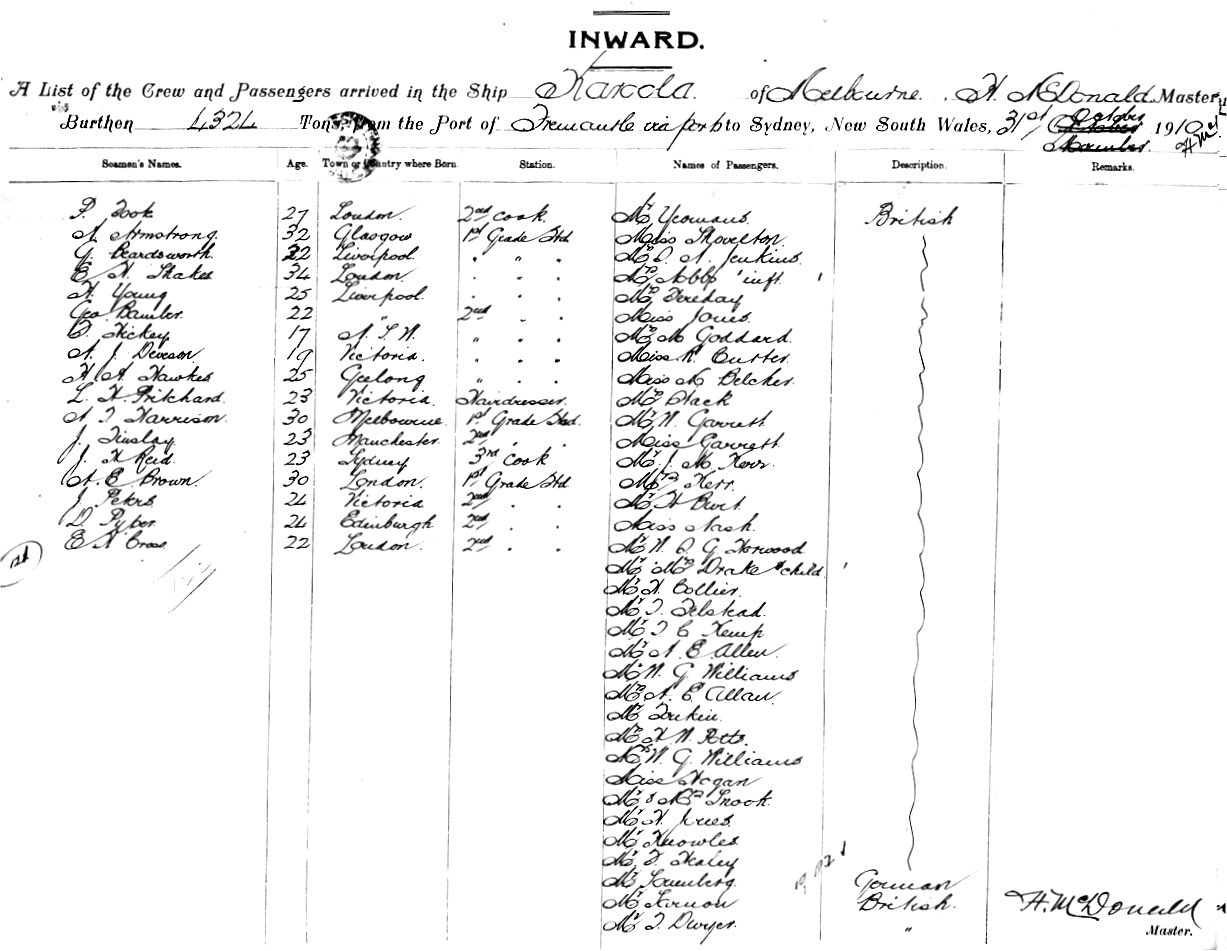 INWARD.
A List of the Crew and Passengers arrived in the Ship Karoola of Melbourne. H. McDonald Master,
Burthen 4324 Tons, from the Port of Fremantle via ports to Sydney, New South Wales, 31st October 1910
Seamen's Names. Age. Town or Country where Born. Station. Names of Passengers. Description. Remarks.
P. Took 27 London. 2nd Cook Mr Yeomans. British
A. Armstrong. 32 Glasgow 1st Grade Std Miss Shovelton
G. Beardsworth. 22 Liverpool. " " " Jenkins.
E H Shakes 34 London. " " " Mrs Abbs 'inft
H Young 25 Liverpool. " " " Mr Fereday
Geo Bamber. 22 " 2nd " " Miss Jones.
Hickey 17 N. S. W. " " " M Goddard.
A. J. Deveson. 19 Victoria. " " " Miss R. Butter.
H A Hawkes 25 Geelong " " " Miss M Belcher.
L. H Pritchard. 23 Victoria. Hairdresser. Mr Black
A T Harrison. 30 Melbourne. 1st Grade Std. Mr W. Garrett
J. Tinslay 23 Manchester. 2nd " " Miss Garrett
J. H Reid. 23 Sydney 3rd Cook Mr J. M. Kerr.
A. E Brown. 30 London. 1st Grade Std Mrs Kerr.
J. Peters 24 Victoria 2nd " " Mr H Burt.
D. Pyper. 24 Edinburgh 2nd " " Miss Nash.
E A Cross 22 London. 2nd " " Mr W. G Horwood
Mr Mrs Drake & child.
Mr H Collier.
Mr T. Felstead.
Mr T C Kemp
Mr A E Allen.
Mr W. G. Williams
Mrs A. E. Allan.
Mr
Mr H W. Potts.
Mrs W. G. Williams
Miss Hogan
Mr & Mrs Snook.
Mr H. Jones.
Mr Knowles.
Mr T. Healey
Mr German
Mr Vernon British. H. McDonald
Mr T. Dwyer. " Master.